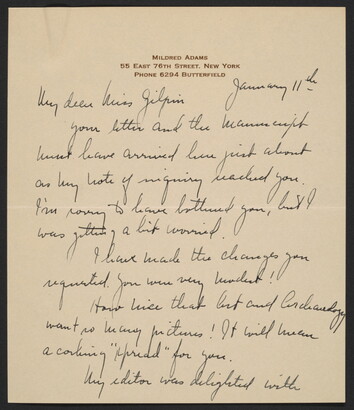 MILDRED ADAMS
55 EAST 76TH STREET, NEW YORK
PHONE 6294 BUTTERFIELD
January 11th
My dear Miss Gilpin
your letter and the manuscript
must have arrived here just about
as my note of inquiry reached you.
I'm sorry to have bothered you, but I
was getting a bit worried.
I have made the changes you
requested. You were very modest!
How nice that Art and Archaeology
wants so many pictures! It will mean
a corking "spread" for you.
My editor was delighted with